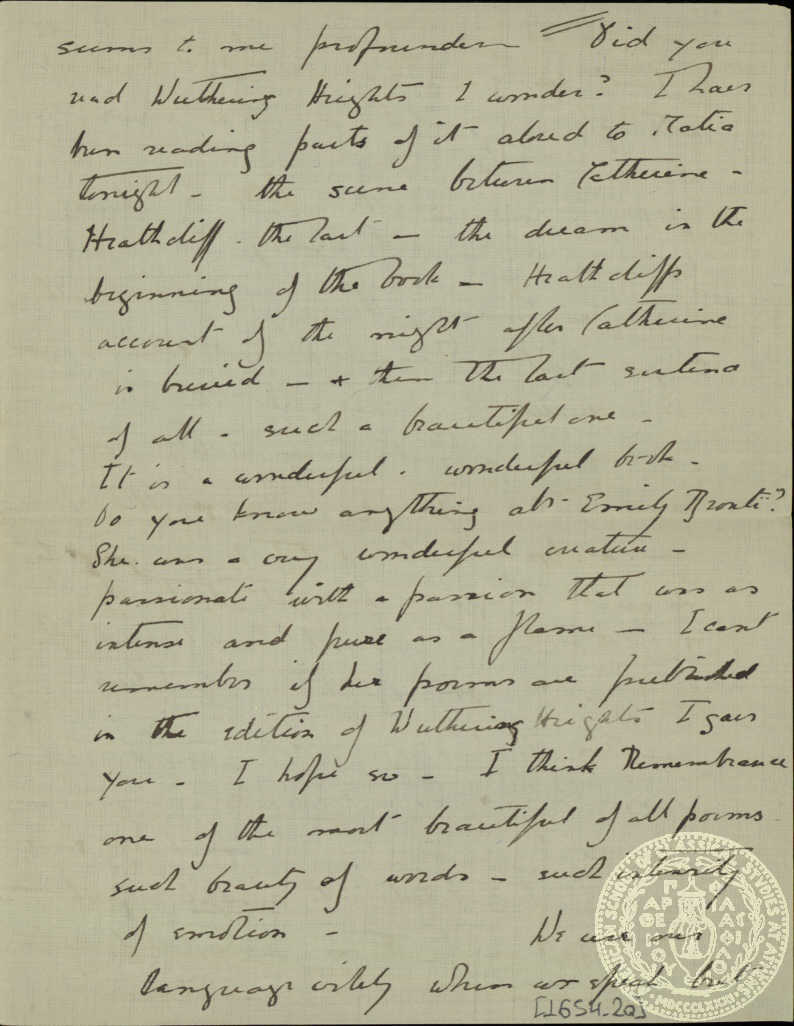 seems to me profounder Did you
read Wuthering Heights I wonder? I have
been reading parts of it aloud to Katia
tonight - the scene between Catherine -
Heathcliff. the last - the dream in the
beginning of the book - Heathcliffs
account of the night after Catherine
is buried - + then the last sentence
of all - such a beautiful one -
It is a wonderful. wonderful book -
Do you know anything abt Emily Brontë?
She was a very wonderful creature -
passionate with a passion that was as
intense and pure as a flame - I cant
remember if her poems are published
in the edition of Wuthering Heights I gave
you - I hope so - I think Remembrance
one of the most beautiful of all poems
such beauty of words - such intensity
of emotion - We use our
language vilely when we speak but
[1654-20]